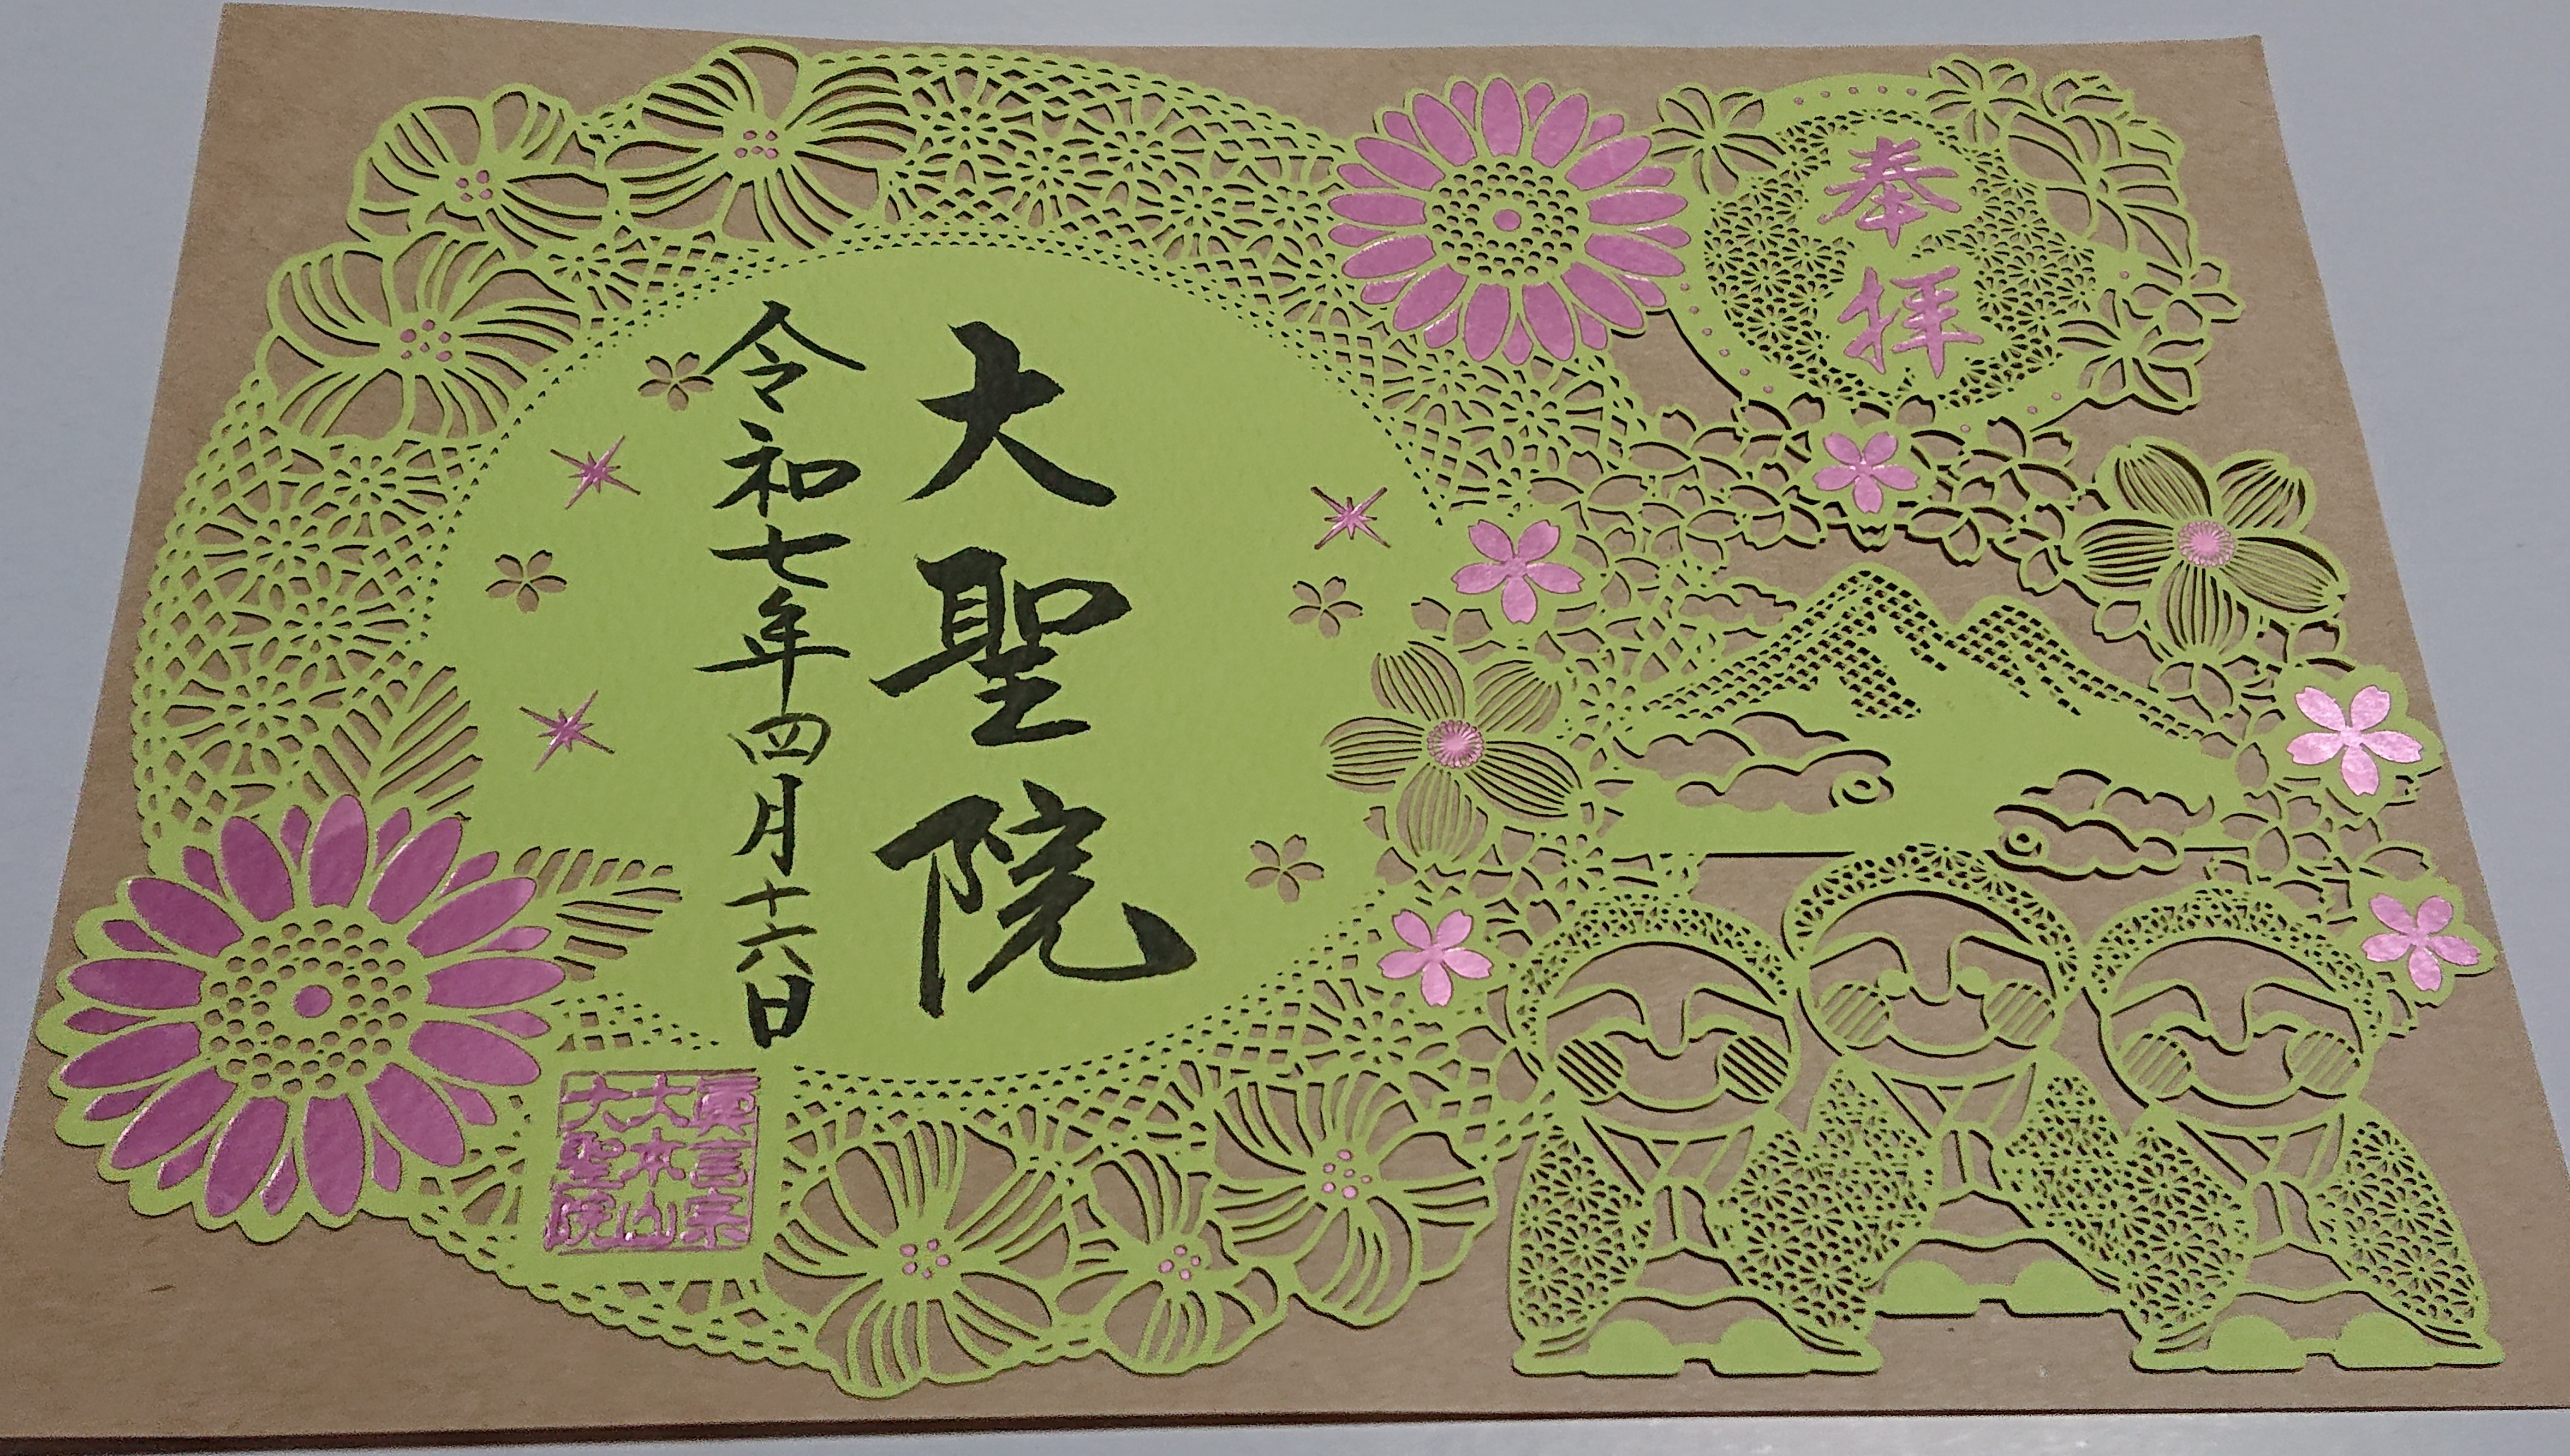 奉拝
大聖院
令和七年四月十六日
眞言宗
大本山
大聖院